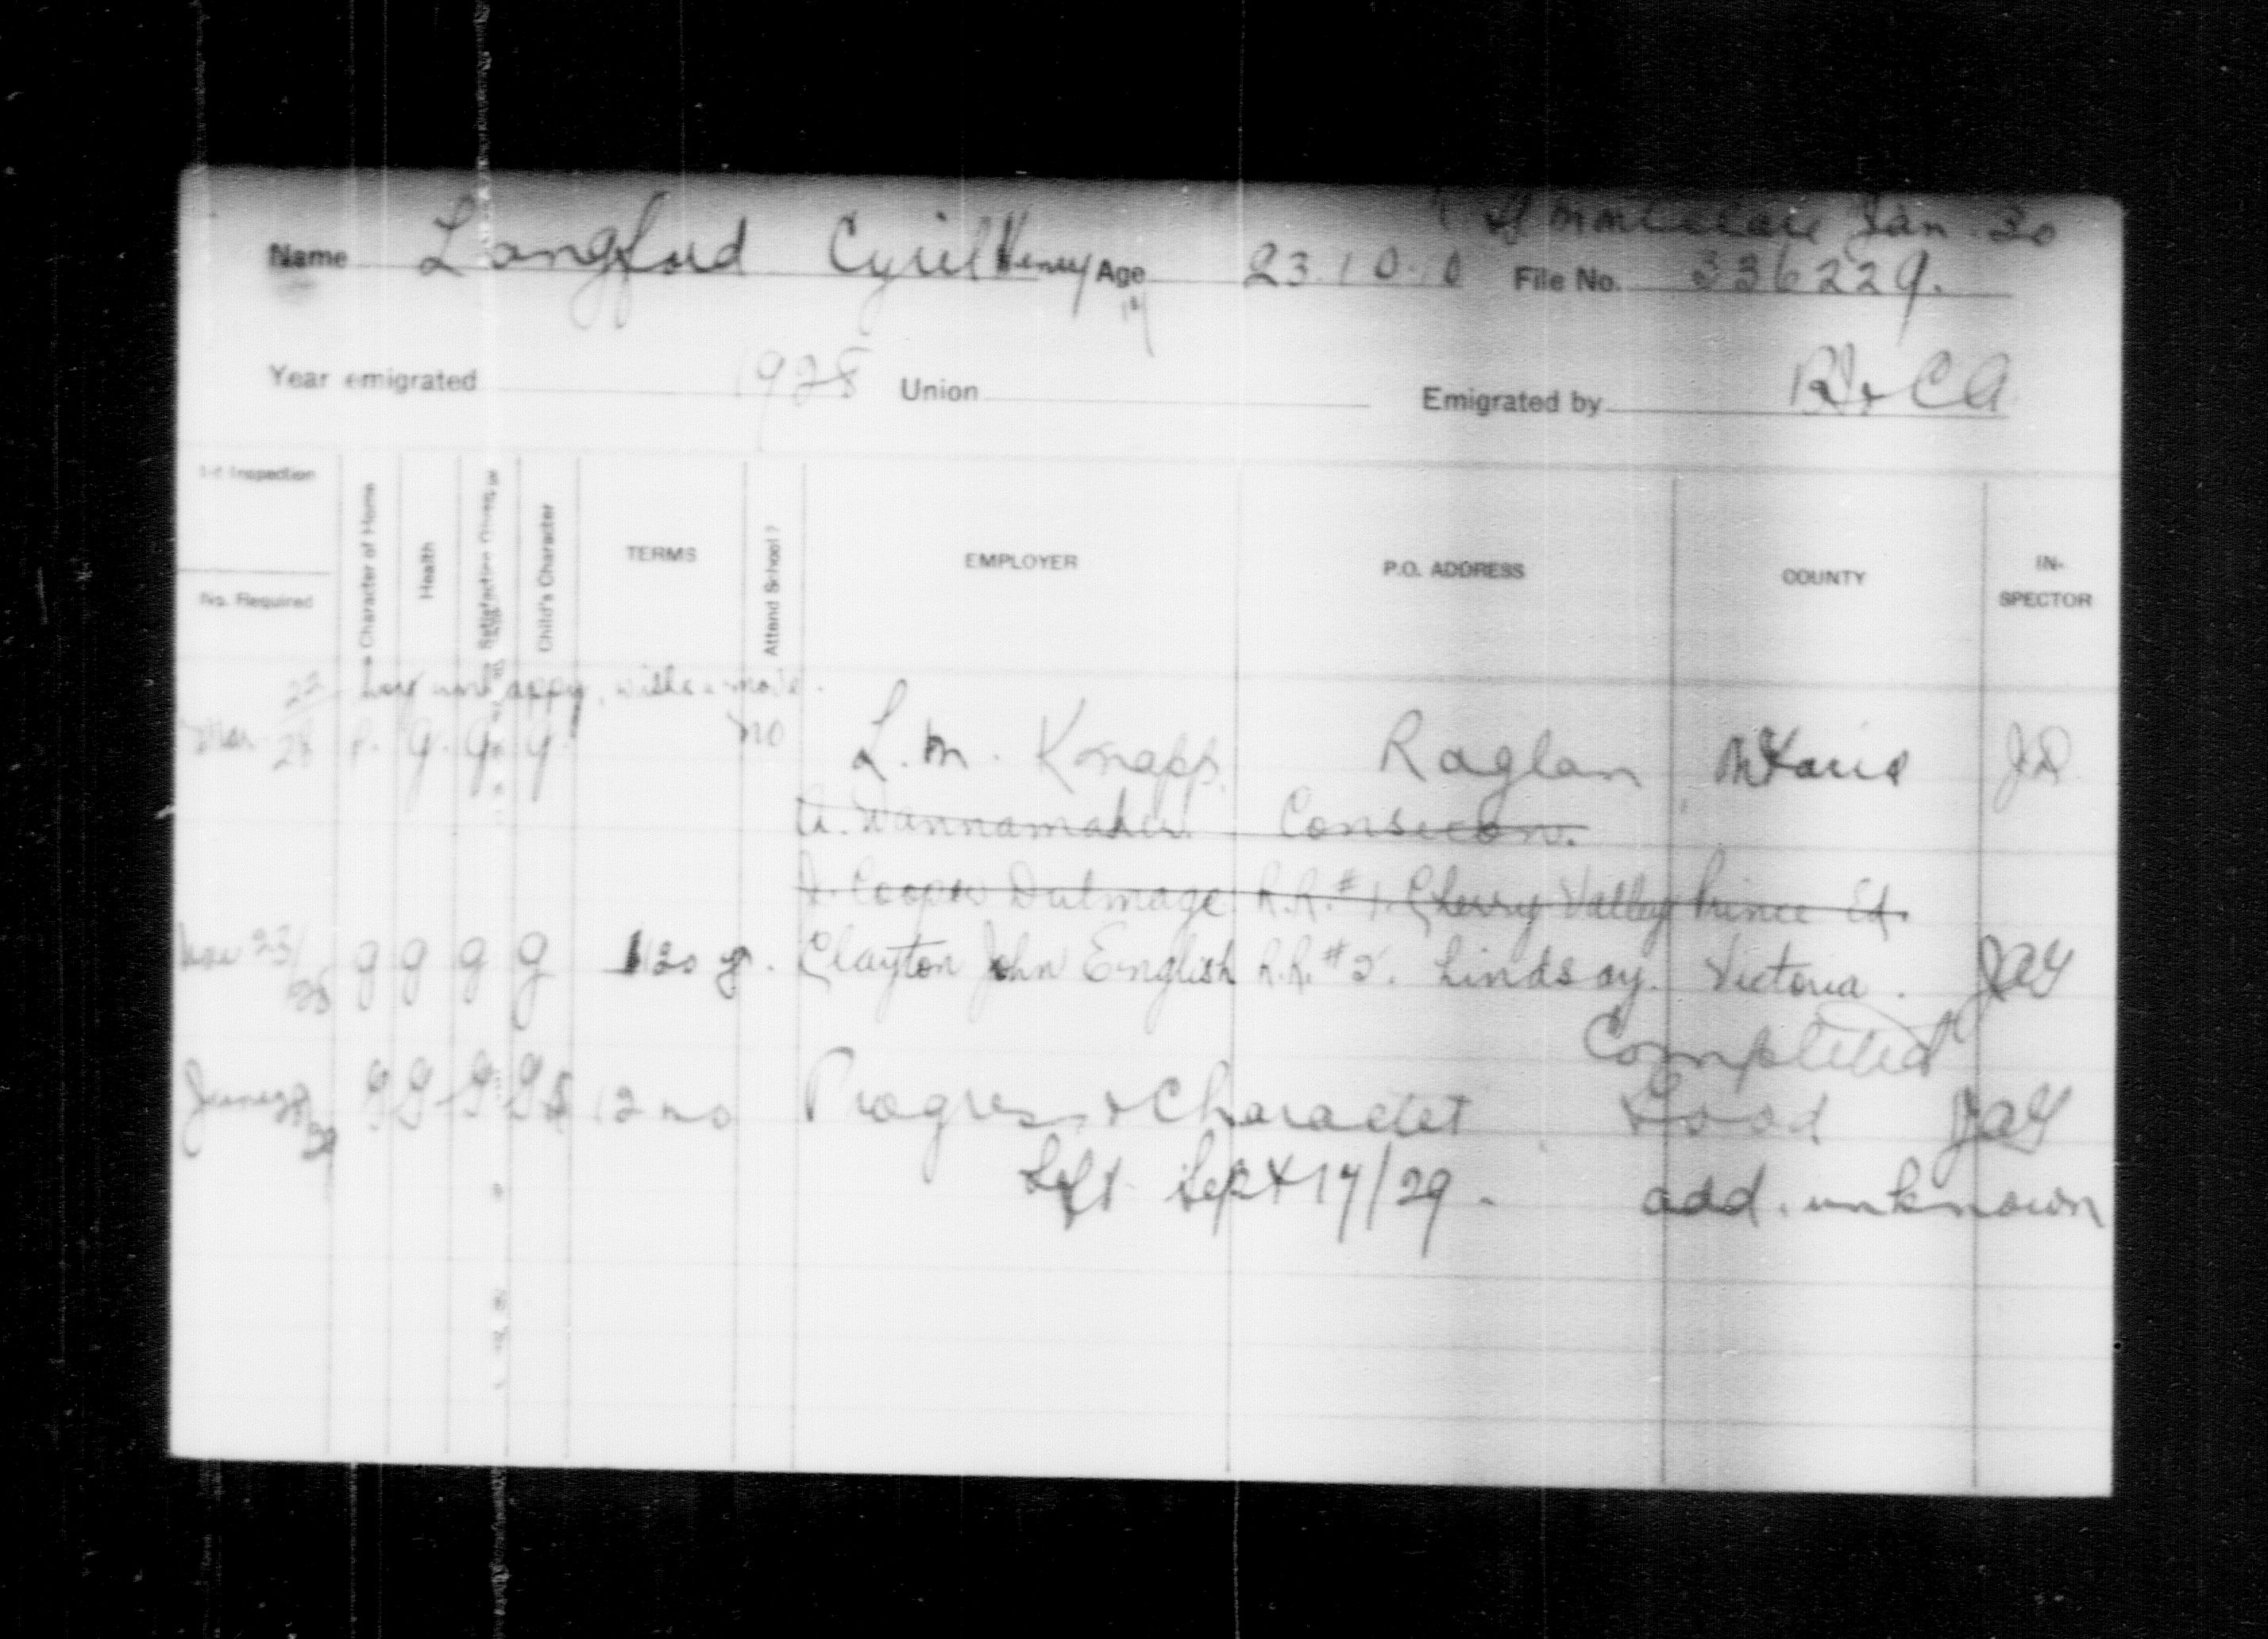 Jan. 30
Name Langford Cyril Henry Age 23.10.10 File No. 336229.
14
Year emigrated 1928 Union Emigrated by
1st Inspection
No. Required
Character of Home
Health
Satisfaction Given
Child's Character
TERMS
Attend School?
EMPLOYER
P.O. ADDRESS
COUNTY
IN-
SPECTOR
22 boy unhappy, wishes move.
Mar 28 P. g. g. g. no L. M. Knapp Raglan Ontario JD
A. Wannamaker Consecon.
Cooper Dulmage R.R. #1. Cherry Valley Prince Ed.
Nov 23/28 g g g g 120 y. Clayton John English R.R. #2. Lindsay. Victoria. JAY
Completed
June 29 g g g g 12 mo Progress & Character Good JAY
Left Sept 17/29. add. unknown